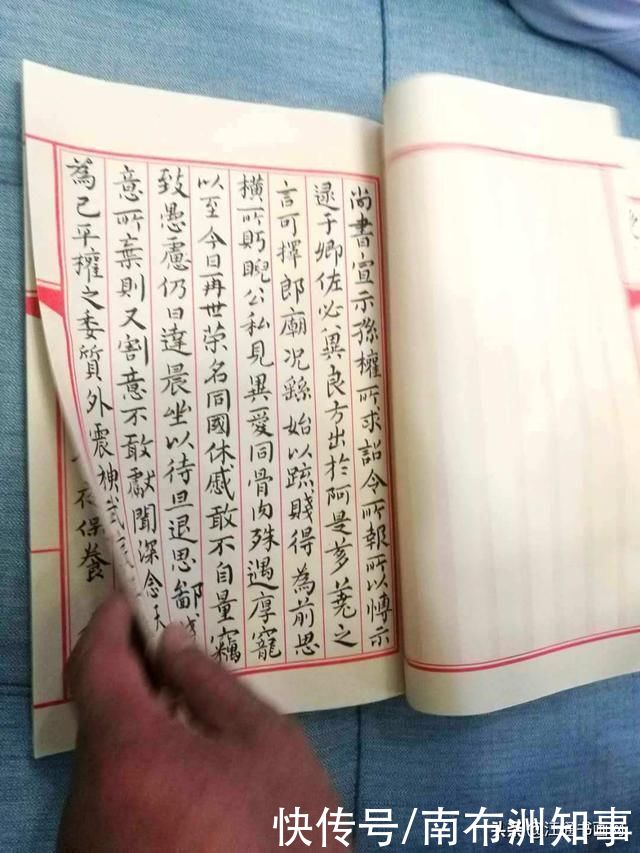 尚書宣示孫權所求詔令所報所以博示
逮于卿佐必冀良方出於阿是芻蕘之
言可擇郎廟況繇始以疏賤得為前恩
橫所眄睨公私見異愛同骨肉殊遇厚寵
以至今日再世榮名同國休慼敢不自量竊
致愚慮仍日達晨坐以待旦退思鄙
意所棄則又割意不敢獻聞深念天
為已平權之委質外震神武
保養
快传号/南布洲知事